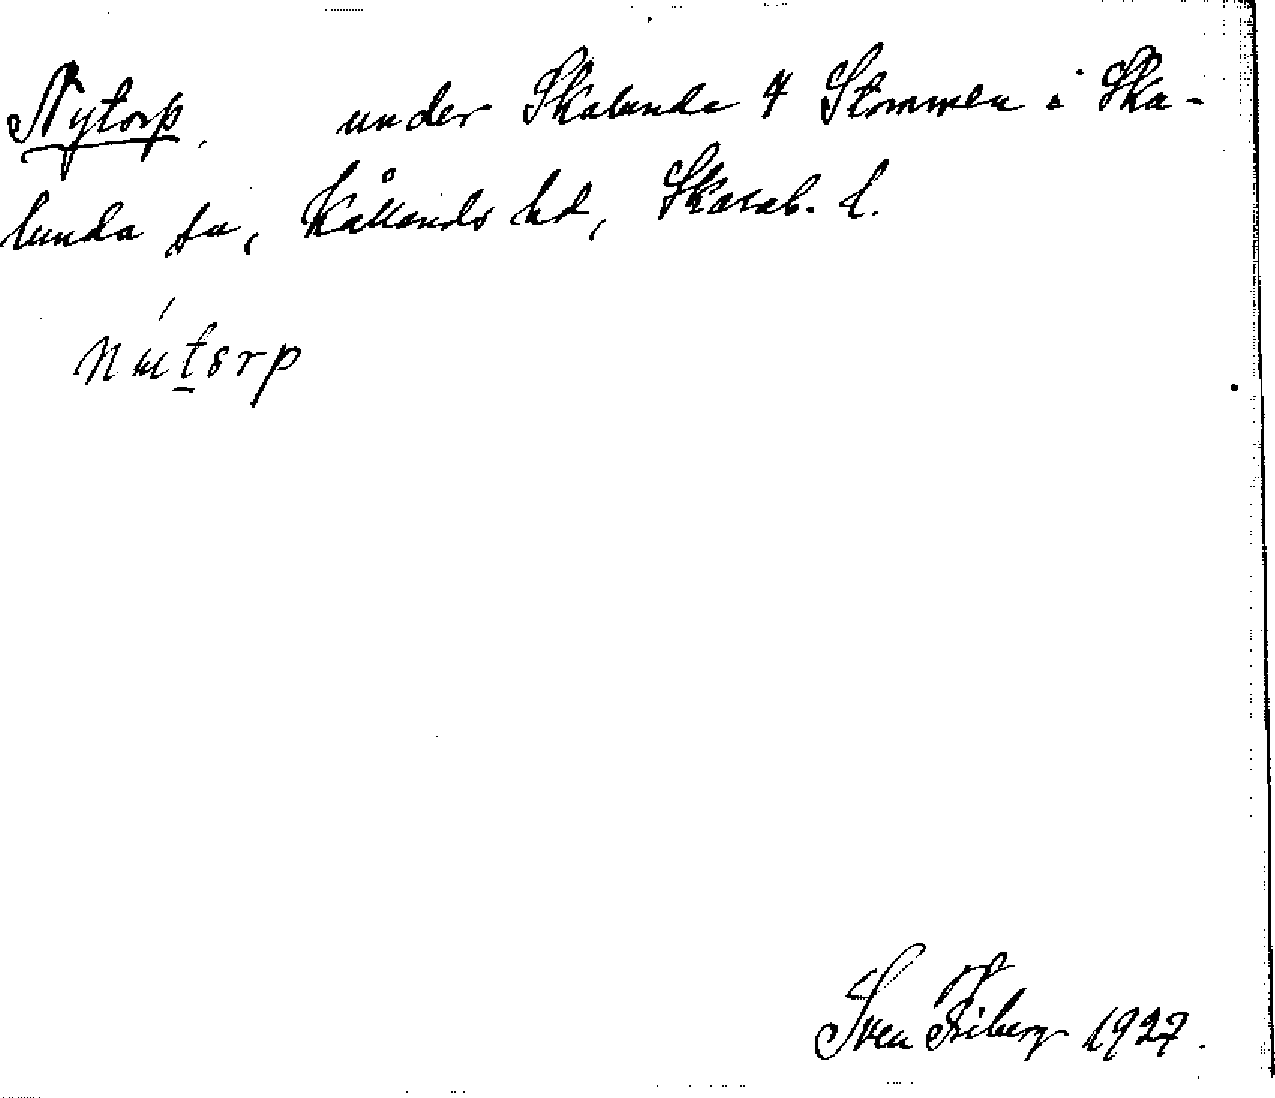 Nytorp. under Skalunda 4 Stommen i Ska-
lunda sn, Kållands hd, Skarab. l.
Sven Friberg 1927.